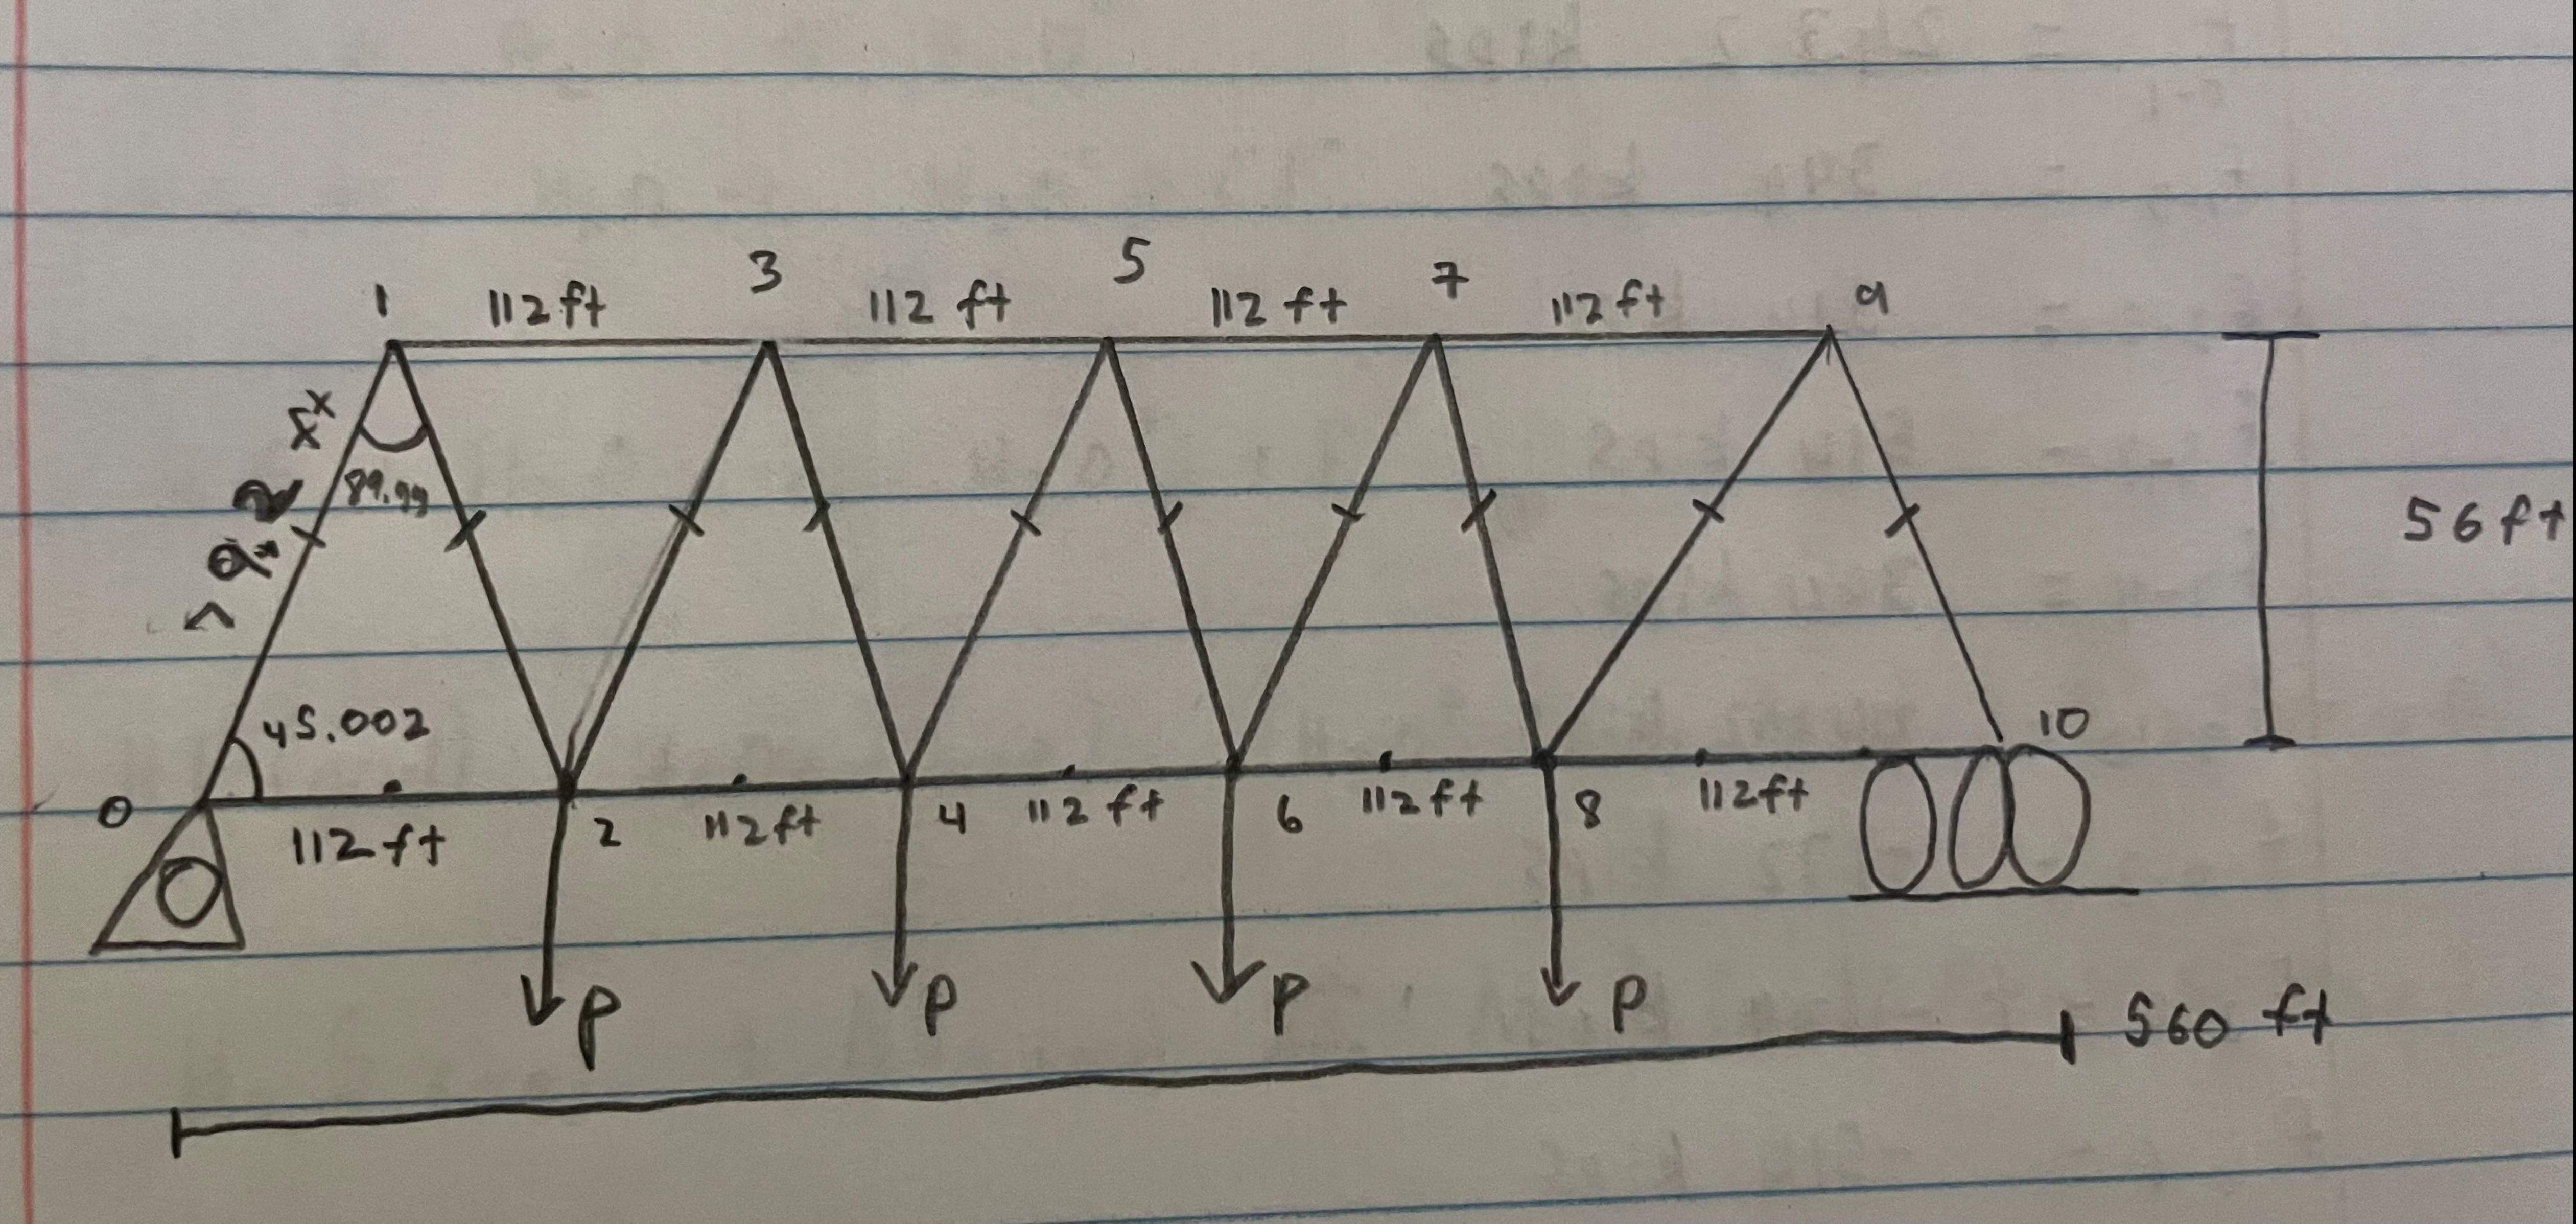 1 3 5 7 9
112 ft 112 ft 112 ft 112 ft
89.99
56 ft
45.002
0 2 4 6 8 10
112 ft 112 ft 112 ft 112 ft 112 ft
P P P P
560 ft